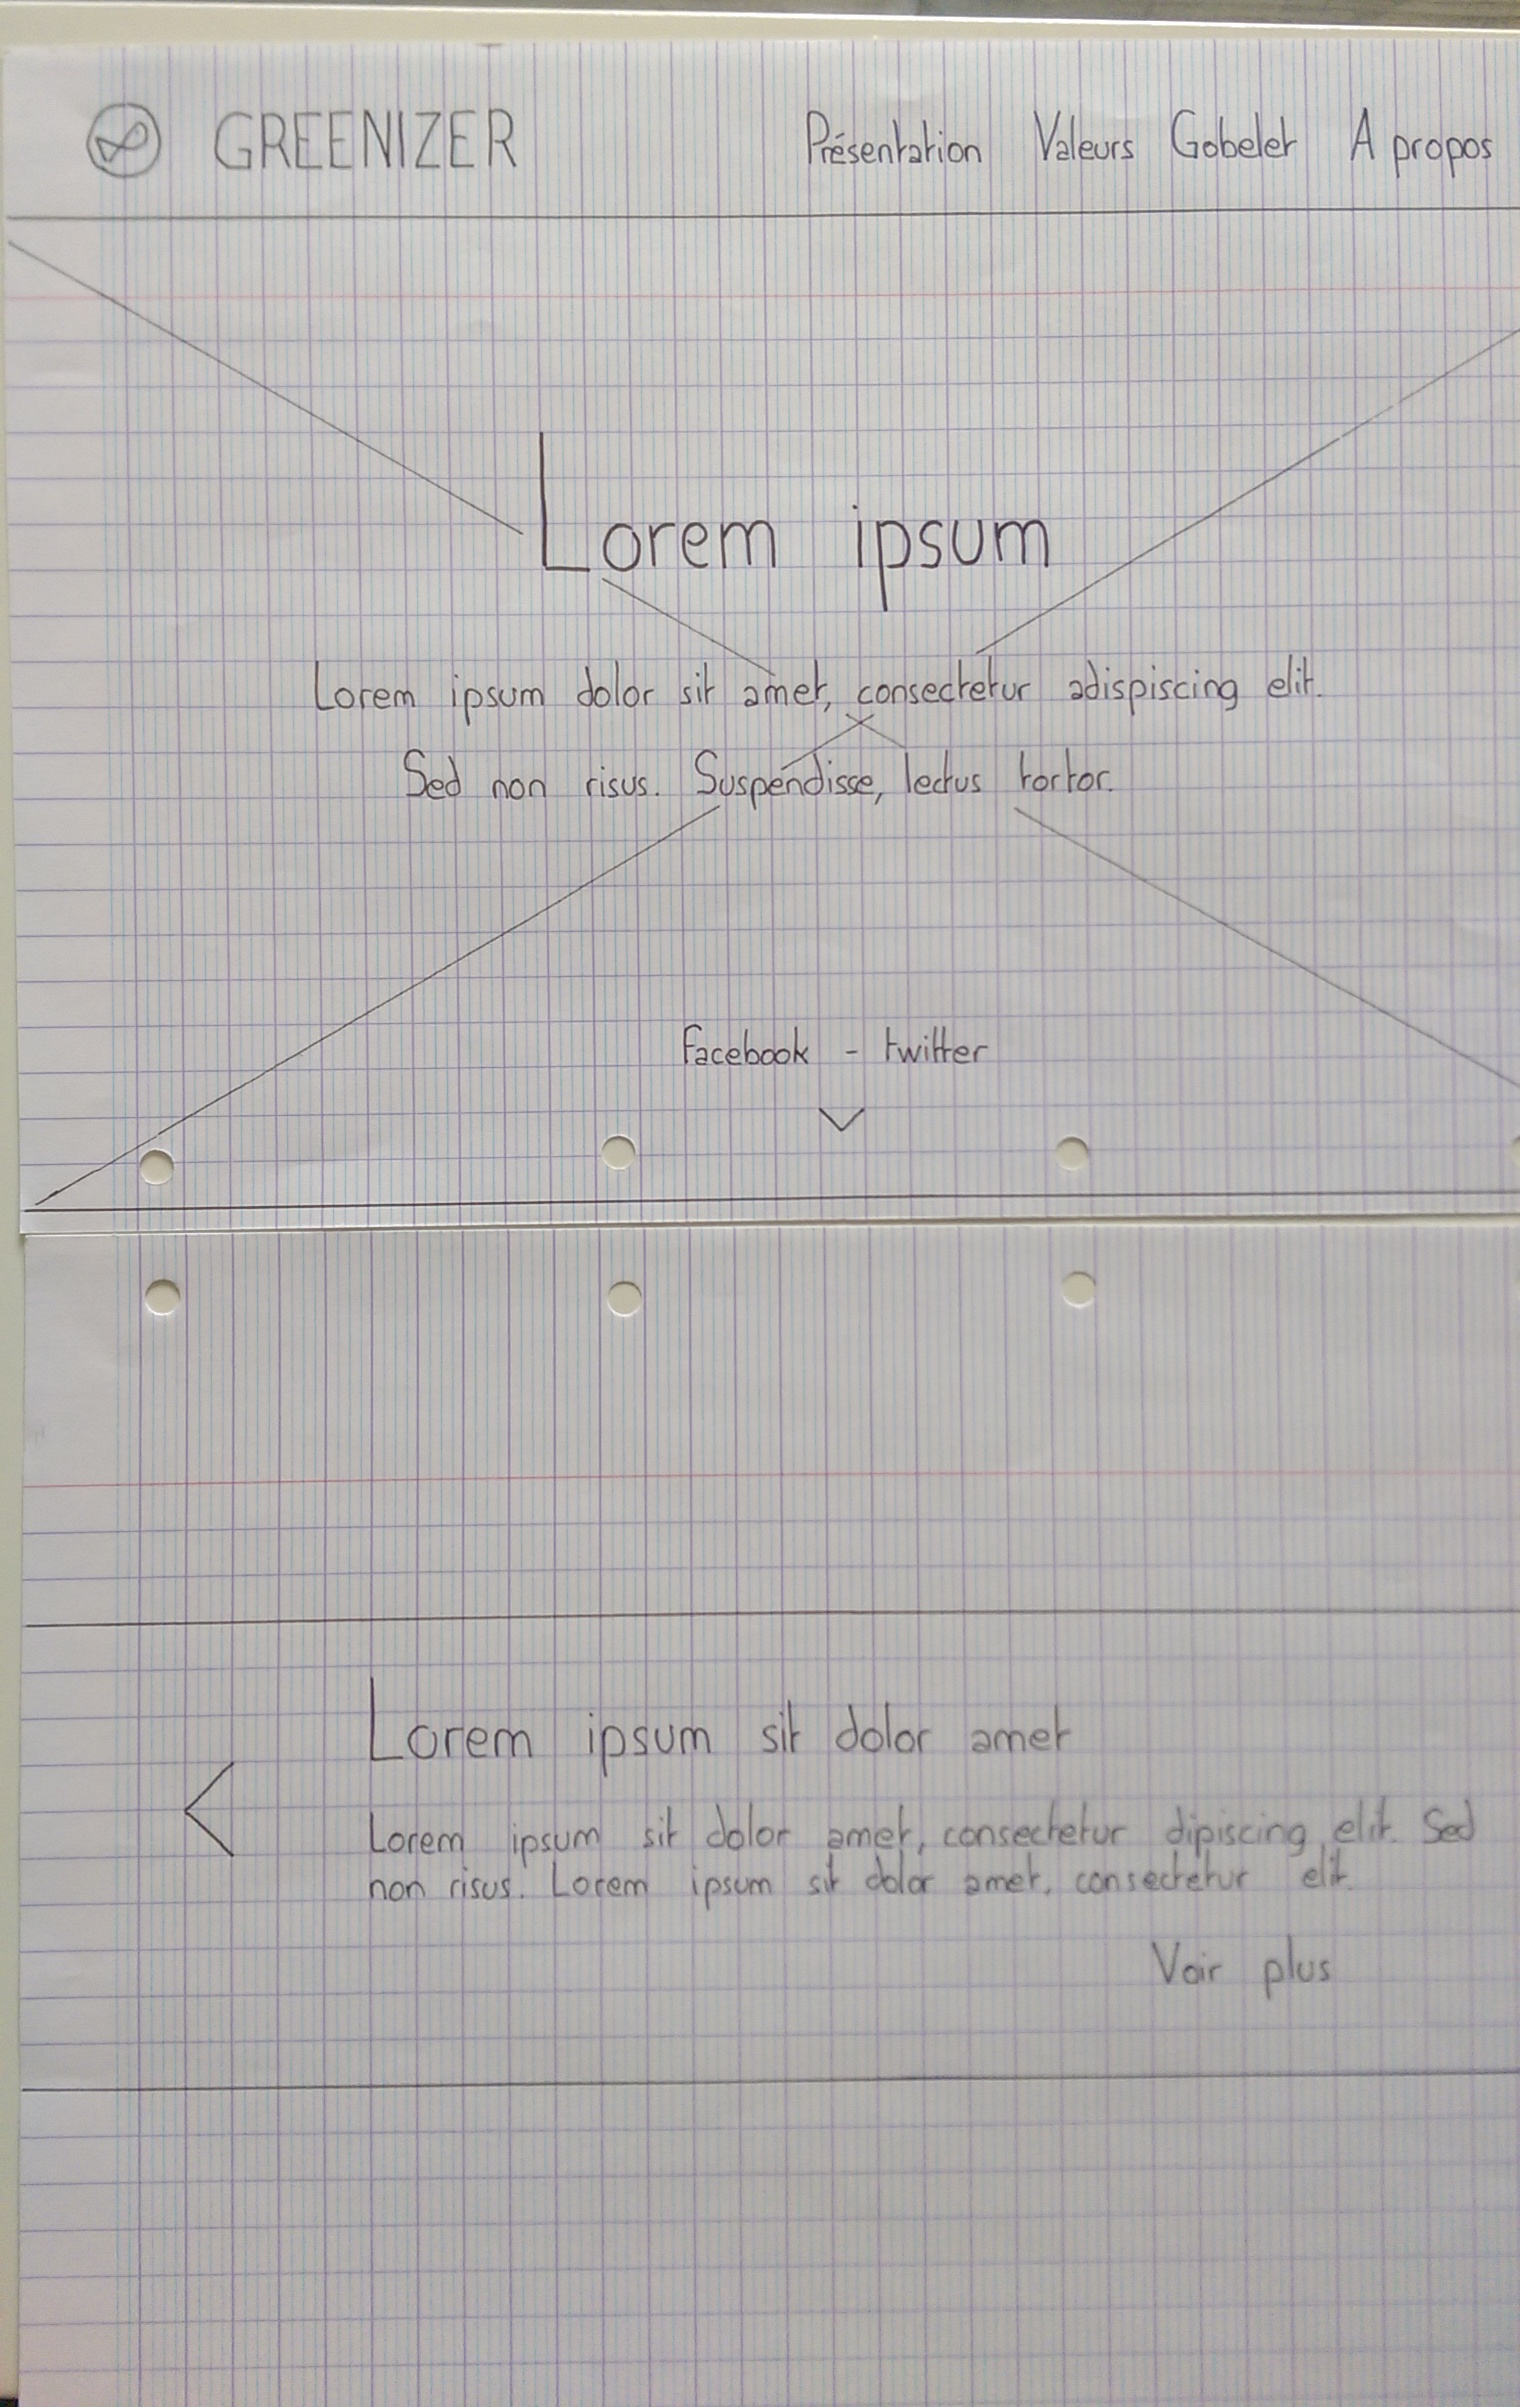 GREENIZER Présentation Valeurs Gobelet A propos
Lorem ipsum
Lorem ipsum dolor sit amet, consectetur adispiscing elit.
Sed non risus. Suspendisse, lectus tortor.
Facebook - twitter
Lorem ipsum sit dolor amet
Lorem ipsum sit dolor amet, consectetur dipiscing elit. Sed
non risus. Lorem ipsum sit dolor amet, consectetur elit.
Voir plus